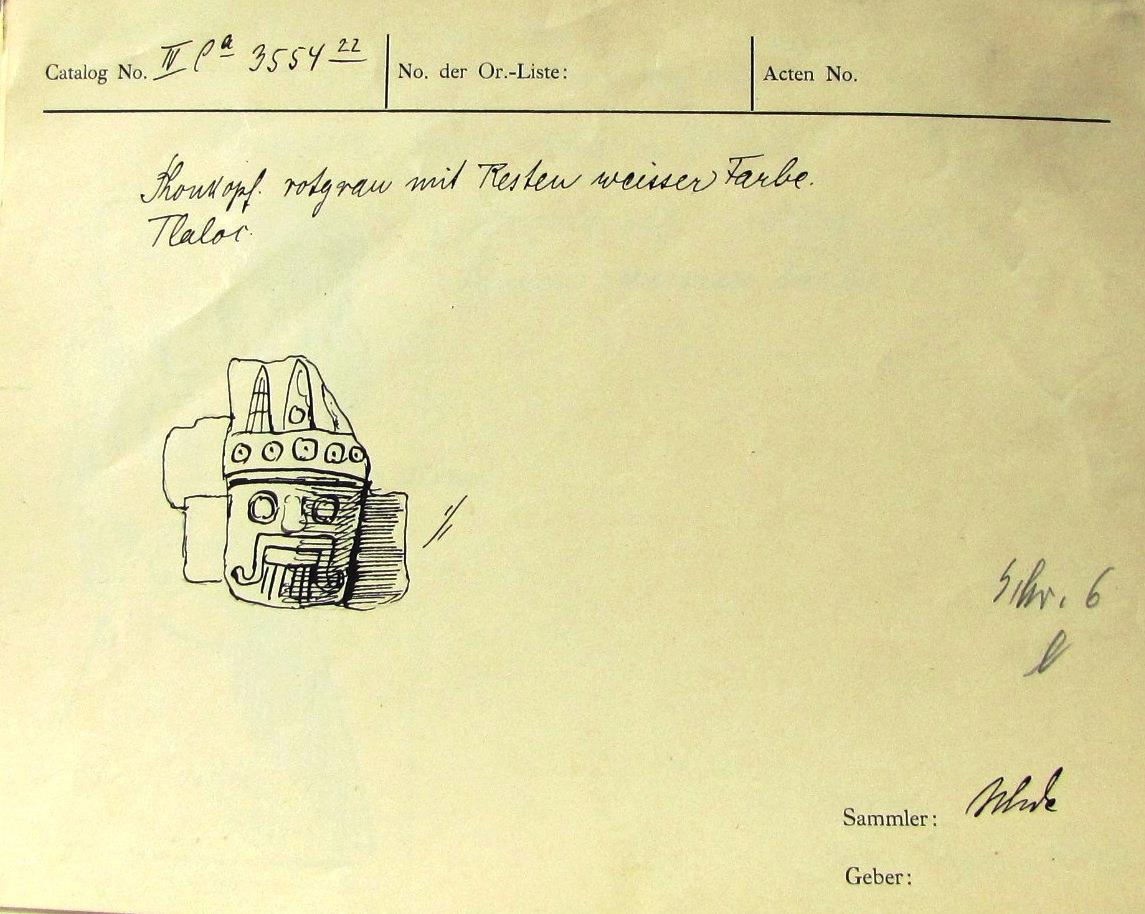 Catalog No. IV Ca 3554 22
No. der Or.-Liste:
Acten No.
Thonkopf. rotgrau mit Resten weisser Farbe.
Tlaloc
Schr. 6
Sammler: Uhde
Geber: